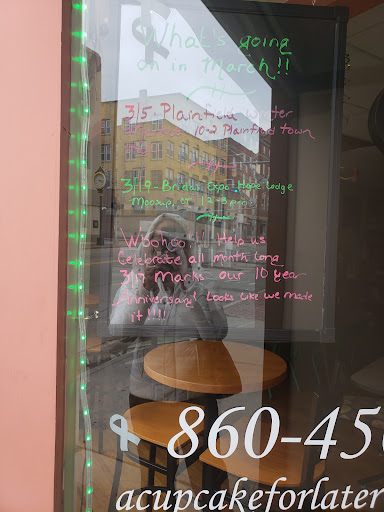 What's going
on in March!!
3/5. Plainfield
10-2 Plainfield Town
3/19. Bridal Expo. Hope Lodge
Moosup, CT 12-3 pm
Woohoo!!! Help us
Celebrate all month long
3/17 marks our 10 year
Anniversary! Looks like we made
it!!!!
860-45
acupcakeforlater